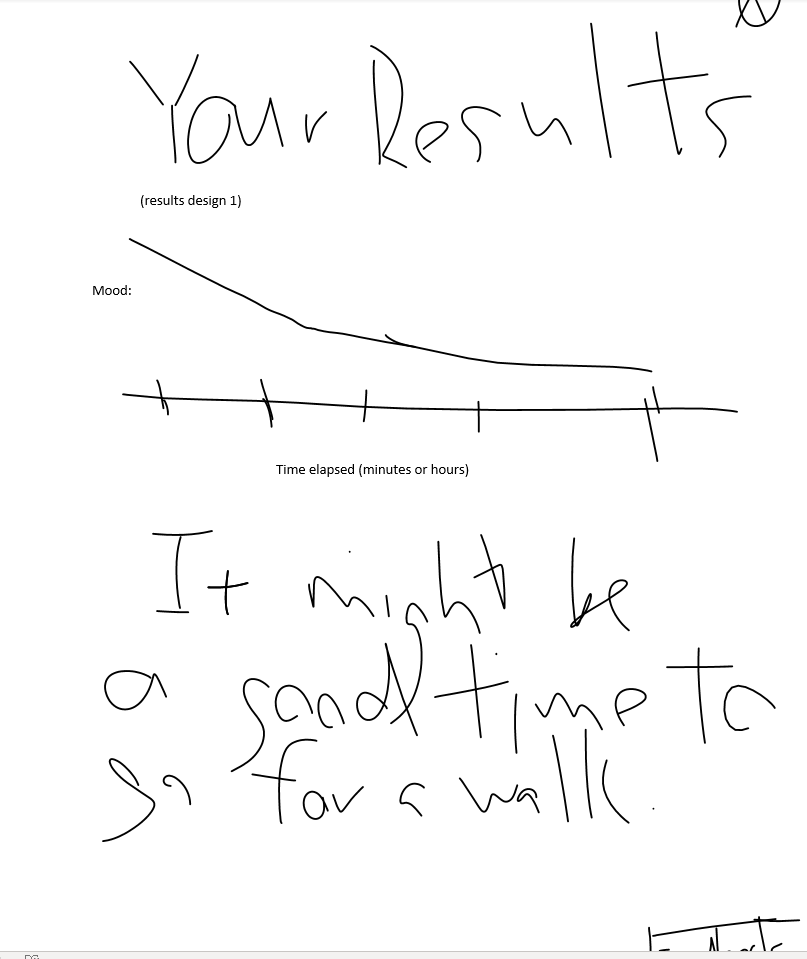 Your Results
(results design 1)
Mood:
Time elapsed (minutes or hours)
It might be
a good time to
go for a walk.